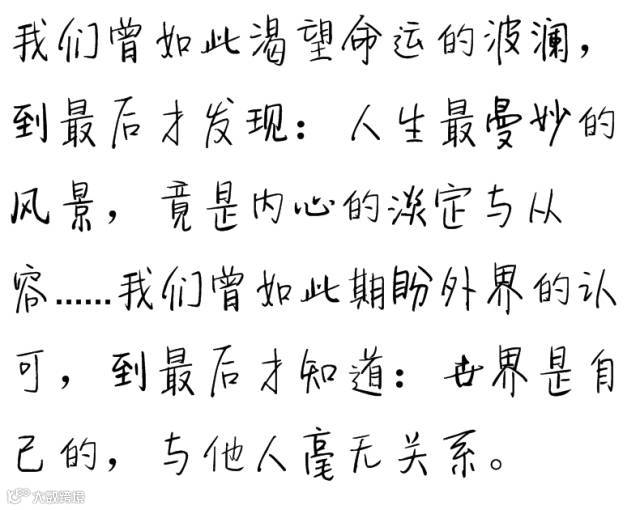 我们曾如此渴望命运的波澜，
到最后才发现：人生最曼妙的
风景，竟是内心的淡定与从
容……我们曾如此期盼外界的认
可，到最后才知道：世界是自
己的，与他人毫无关系。
大数跨境